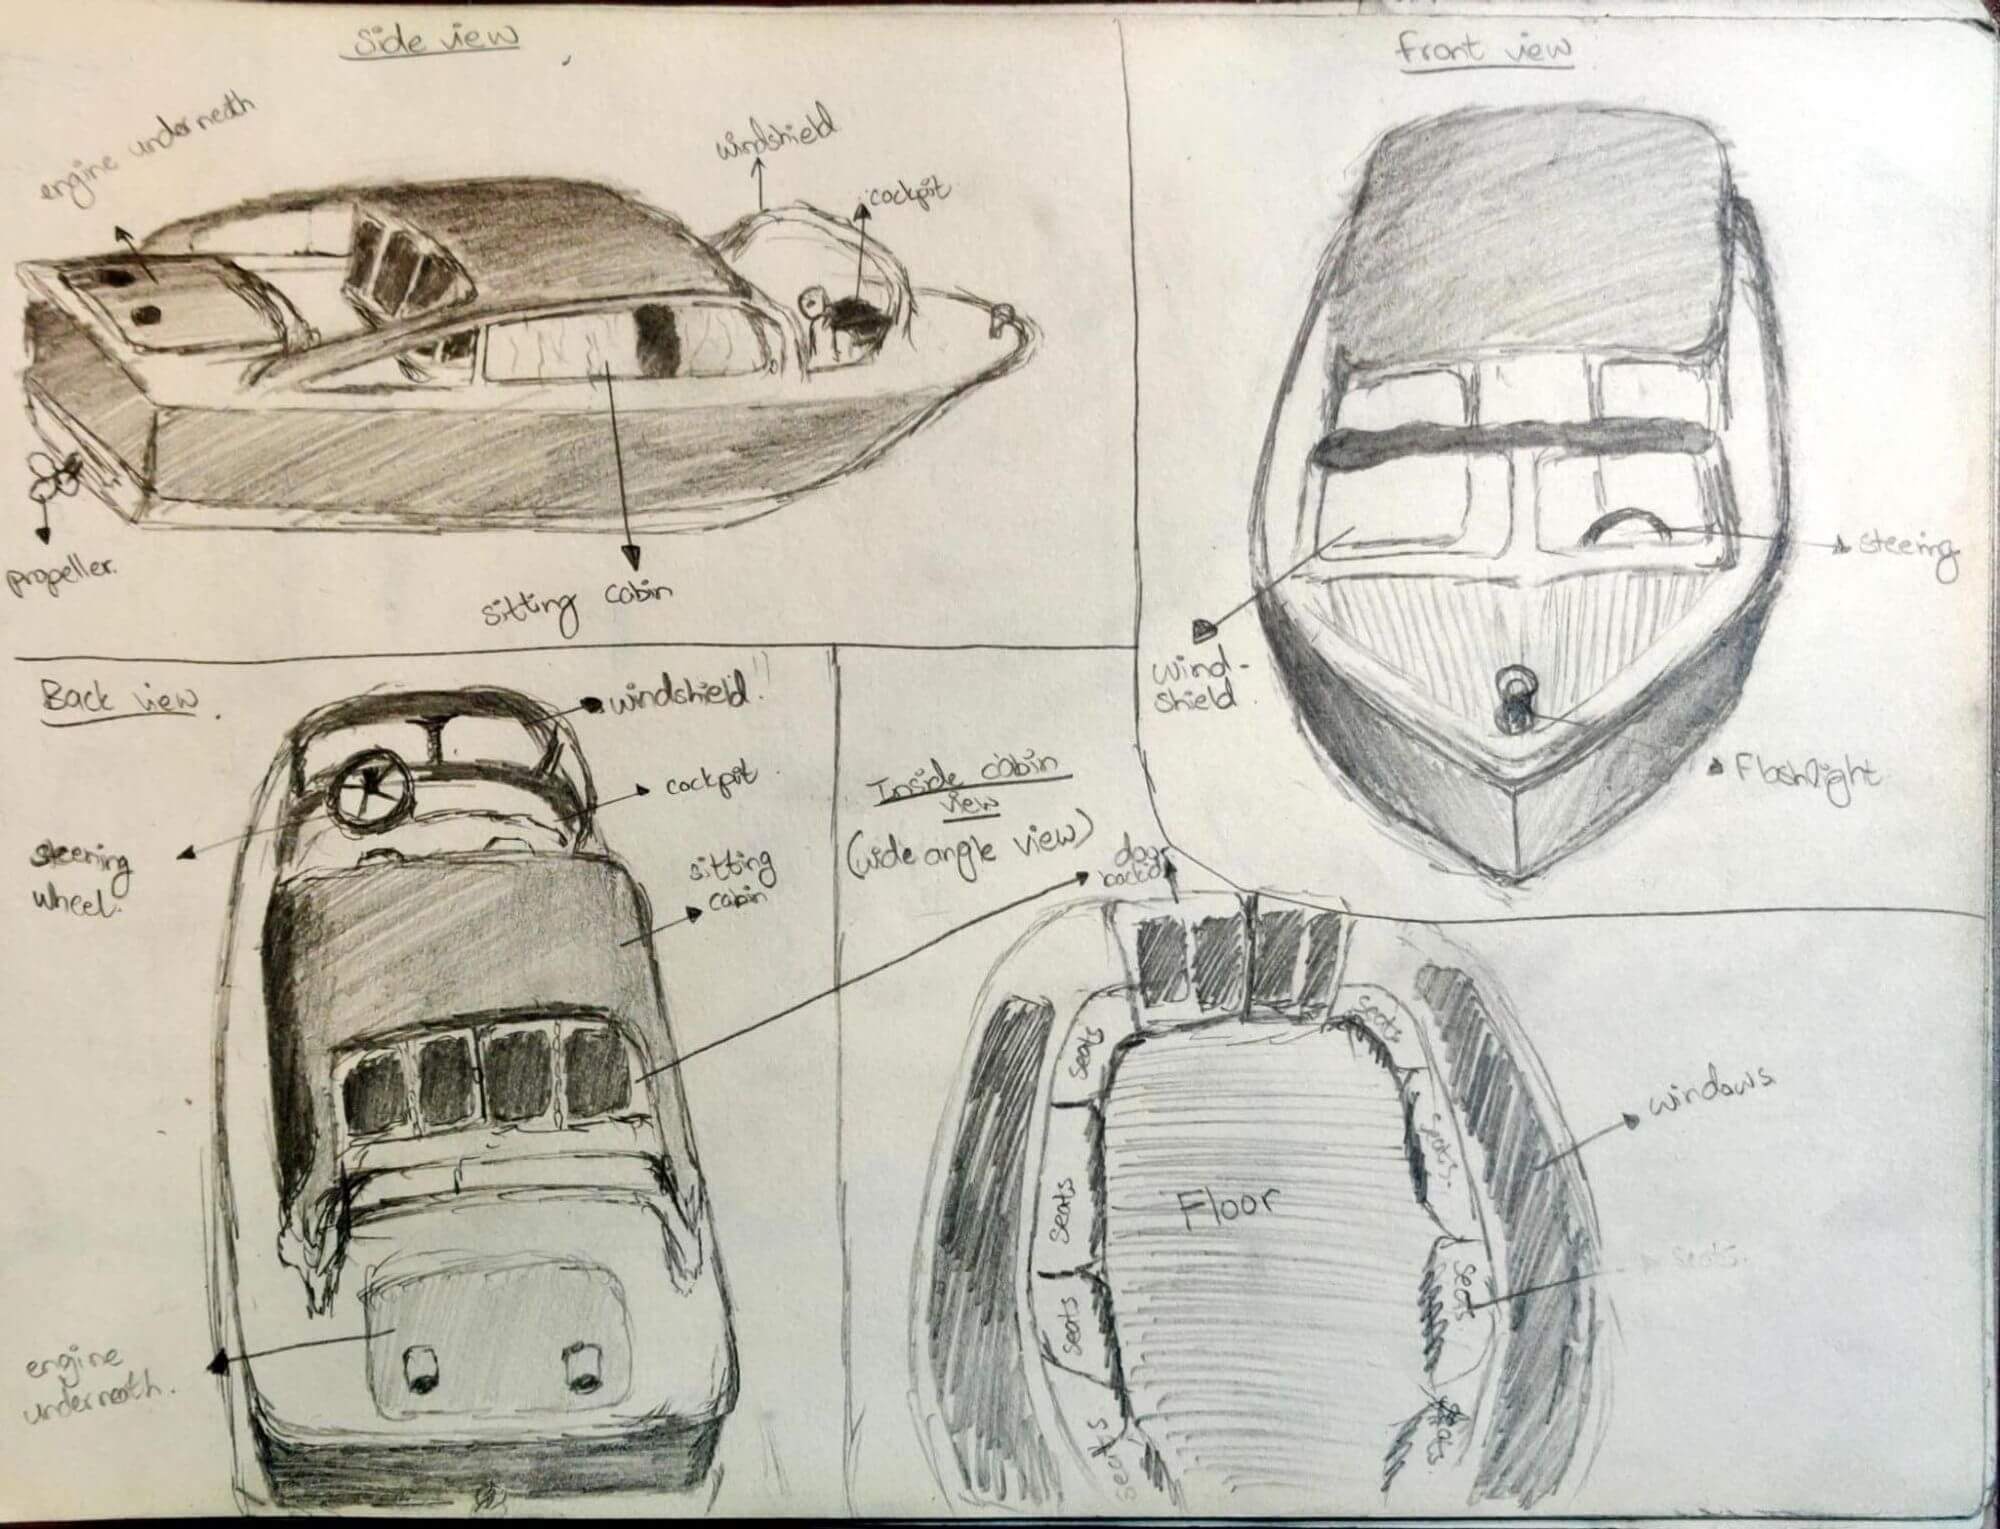 Side view
engine underneath
windshield
cockpit
propeller.
sitting cabin
Front view
steering
wind-
shield.
Flashlight
Back view.
windshield.
cockpit.
steering
wheel.
sitting
cabin
engine
underneath.
Inside cabin
view
(wide angle view)
door
seats
seats
seats
seats
seats
seats.
seats
seats.
Floor
windows
seats.